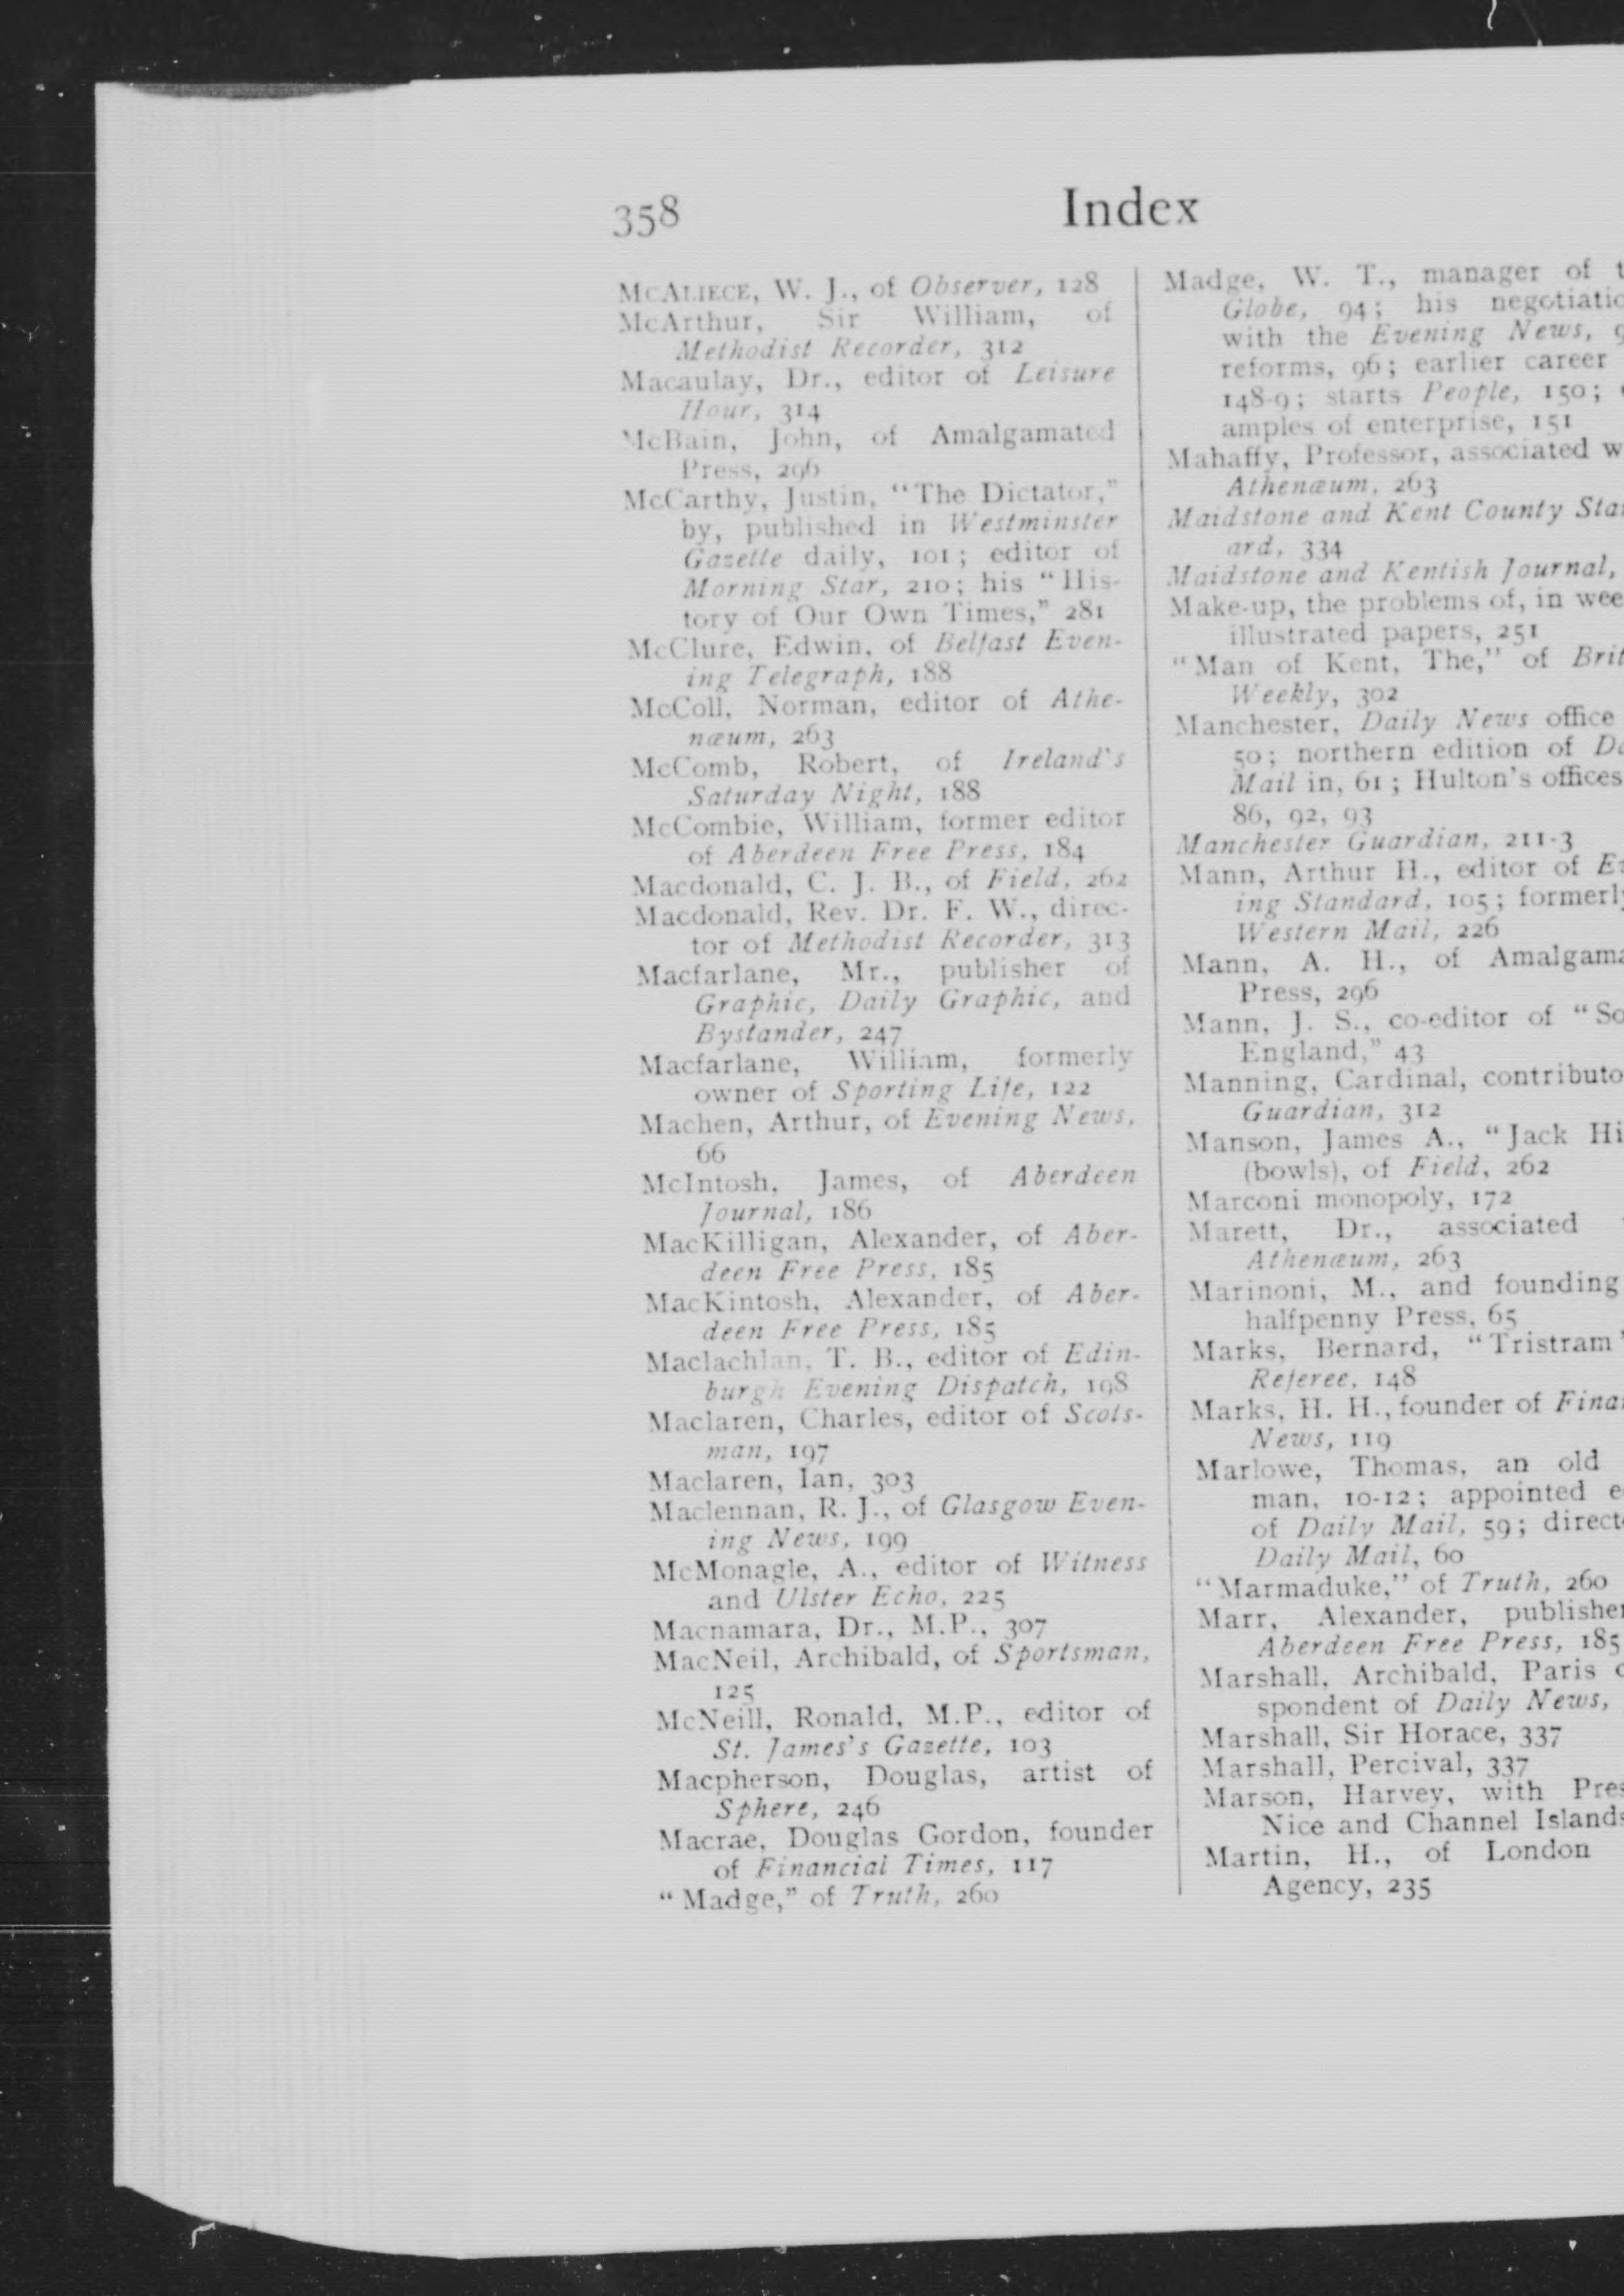 358
Index
McAliece, W. J., of Observer, 128
McArthur, Sir William, of
Methodist Recorder, 312
Macaulay, Dr., editor of Leisure
Hour, 314
McBain, John, of Amalgamated
Press, 296
McCarthy, Justin, "The Dictator,"
by, published in Westminster
Gazette daily, 101; editor of
Morning Star, 210; his "His-
tory of Our Own Times," 281
McClure, Edwin, of Belfast Even-
ing Telegraph, 188
McColl, Norman, editor of Athe-
næum, 263
McComb, Robert, of Ireland's
Saturday Night, 188
McCombie, William, former editor
of Aberdeen Free Press, 184
Macdonald, C. J. B., of Field, 262
Macdonald, Rev. Dr. F. W., direc-
tor of Methodist Recorder, 313
Macfarlane, Mr., publisher of
Graphic, Daily Graphic, and
Bystander, 247
Macfarlane, William, formerly
owner of Sporting Life, 122
Machen, Arthur, of Evening News,
66
McIntosh, James, of Aberdeen
Journal, 186
MacKilligan, Alexander, of Aber-
deen Free Press, 185
MacKintosh, Alexander, of Aber-
deen Free Press, 185
Maclachlan, T. B., editor of Edin-
burgh Evening Dispatch, 198
Maclaren, Charles, editor of Scots-
man, 197
Maclaren, Ian, 303
Maclennan, R. J., of Glasgow Even-
ing News, 199
McMonagle, A., editor of Witness
and Ulster Echo, 225
Macnamara, Dr., M.P., 307
MacNeil, Archibald, of Sportsman,
125
McNeill, Ronald, M.P., editor of
St. James's Gazette, 103
Macpherson, Douglas, artist of
Sphere, 246
Macrae, Douglas Gordon, founder
of Financial Times, 117
"Madge," of Truth, 260
Madge, W. T., manager of t
Globe, 94; his negotiatio
with the Evening News, 9
reforms, 96; earlier career
148-9; starts People, 150;
amples of enterprise, 151
Mahaffy, Professor, associated w
Athenæum, 263
Maidstone and Kent County Stan
ard, 334
Maidstone and Kentish Journal,
Make-up, the problems of, in wee
illustrated papers, 251
"Man of Kent, The," of Brit
Weekly, 302
Manchester, Daily News office
50; northern edition of Da
Mail in, 61; Hulton's offices
86, 92, 93
Manchester Guardian, 211-3
Mann, Arthur H., editor of Ev
ing Standard, 105; formerly
Western Mail, 226
Mann, A. H., of Amalgama
Press, 296
Mann, J. S., co-editor of "So
England," 43
Manning, Cardinal, contributo
Guardian, 312
Manson, James A., "Jack Hi
(bowls), of Field, 262
Marconi monopoly, 172
Marett, Dr., associated
Athenæum, 263
Marinoni, M., and founding
halfpenny Press, 65
Marks, Bernard, "Tristram"
Referee, 148
Marks, H. H., founder of Finan
News, 119
Marlowe, Thomas, an old
man, 10-12; appointed e
of Daily Mail, 59; directo
Daily Mail, 60
"Marmaduke," of Truth, 260
Marr, Alexander, publisher
Aberdeen Free Press, 185
Marshall, Archibald, Paris c
spondent of Daily News,
Marshall, Sir Horace, 337
Marshall, Percival, 337
Marson, Harvey, with Pres
Nice and Channel Islands
Martin, H., of London
Agency, 235